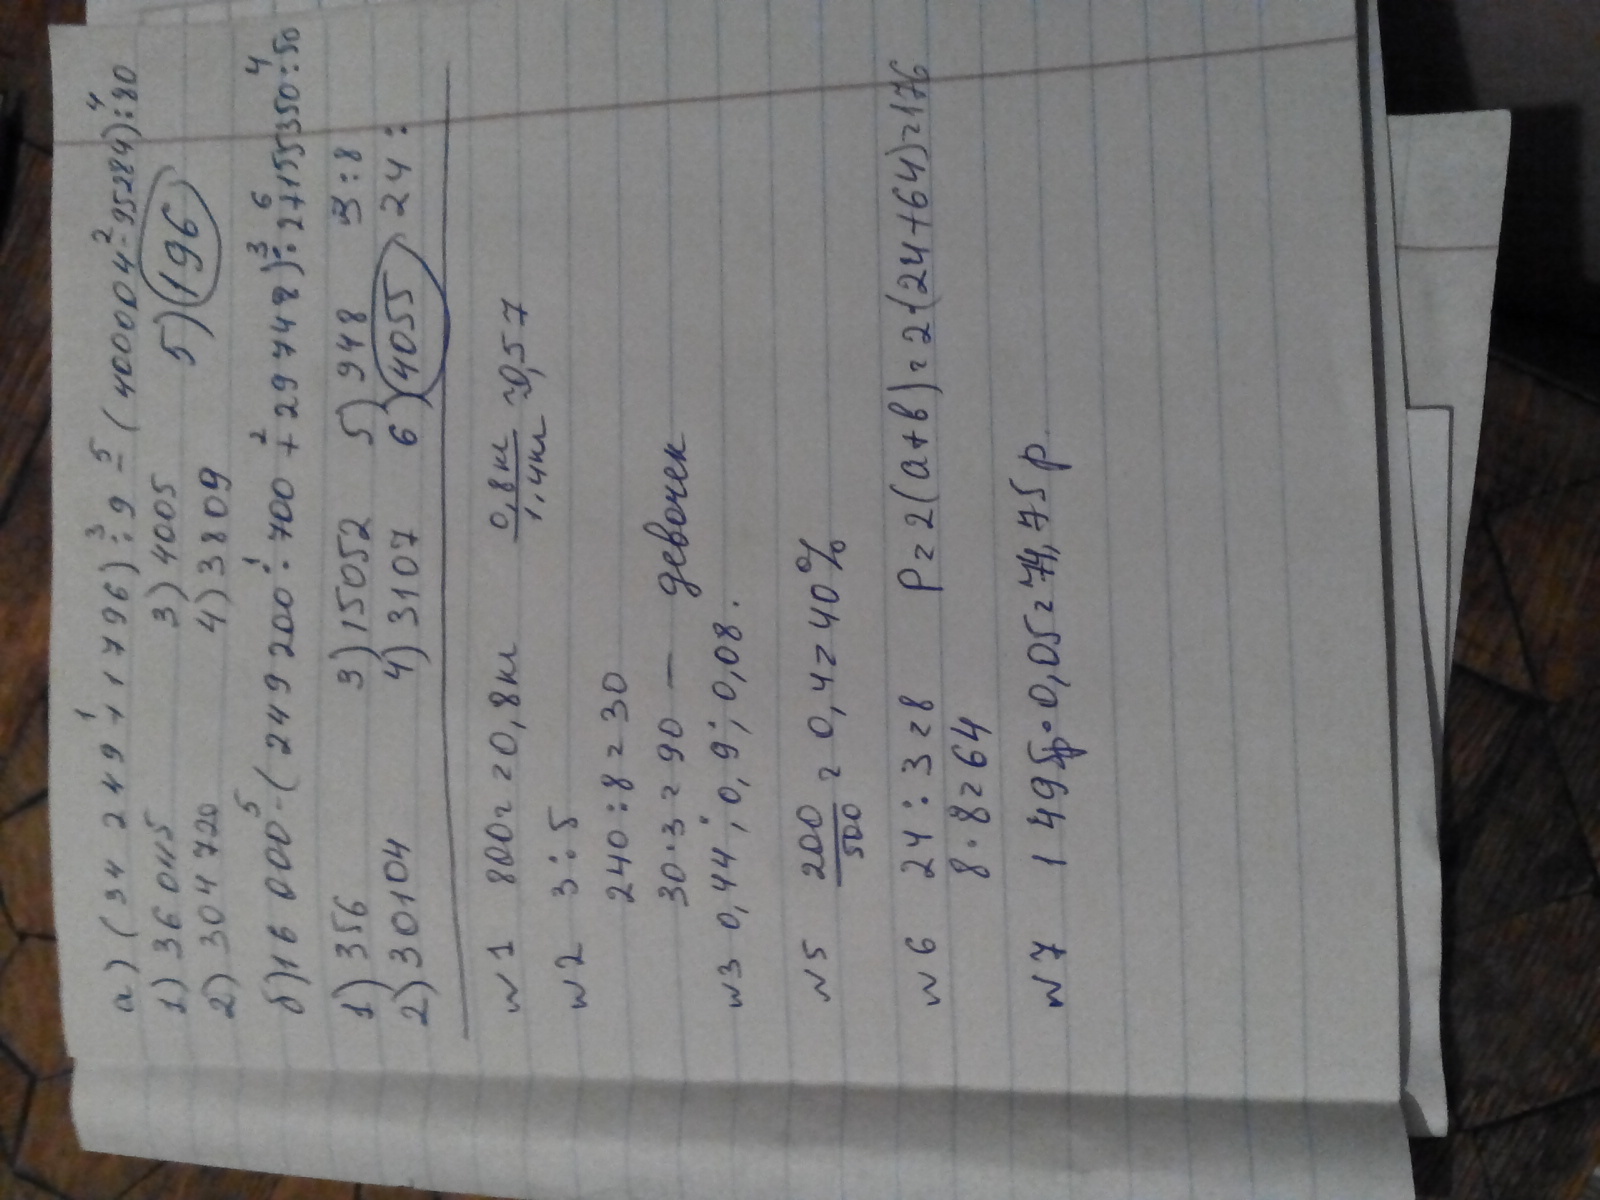 а) (34 249 + 1796) : 9 - (400004 - 95284) : 80
1) 36045 3) 4005 5) 196
2) 304720 4) 3809
б) 16 000 - (249 200 : 700 + 29748) : 2 + 155350 : 50
1) 356 3) 15052 5) 948 3 : 8
2) 30104 4) 3107 6) 4055 24 :
№1 800г = 0,8кг 0,8кг/1,4кг ≈ 0,57
№2 3 : 5
240 : 8 = 30
30 · 3 = 90 — девочек
№3 0,44 ; 0,9 ; 0,08.
№5 200/500 = 0,4 = 40%
№6 24 : 3 = 8 P = 2(a+b) = 2·(24+64) = 176
8 · 8 = 64
№7 1 495р · 0,05 = 74,75р.